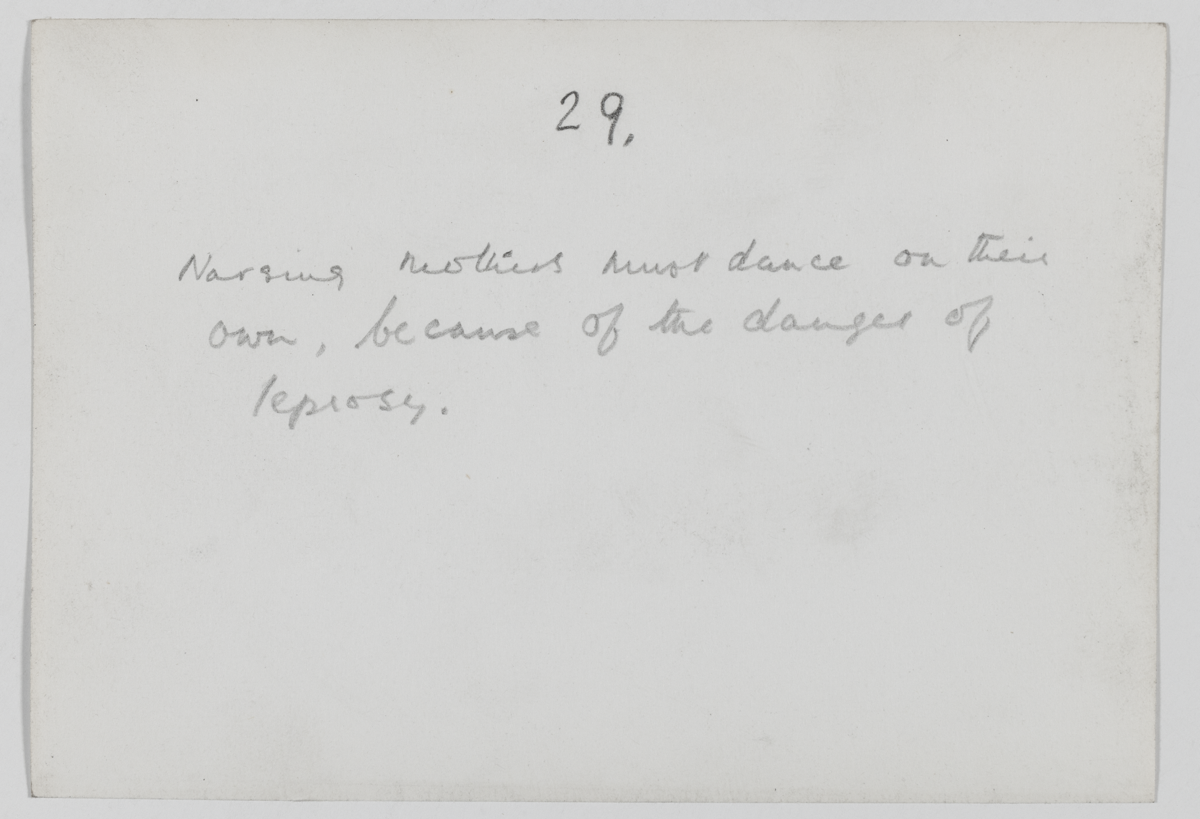 29.
Nursing mothers must dance on their
own, because of the danger of
leprosy.